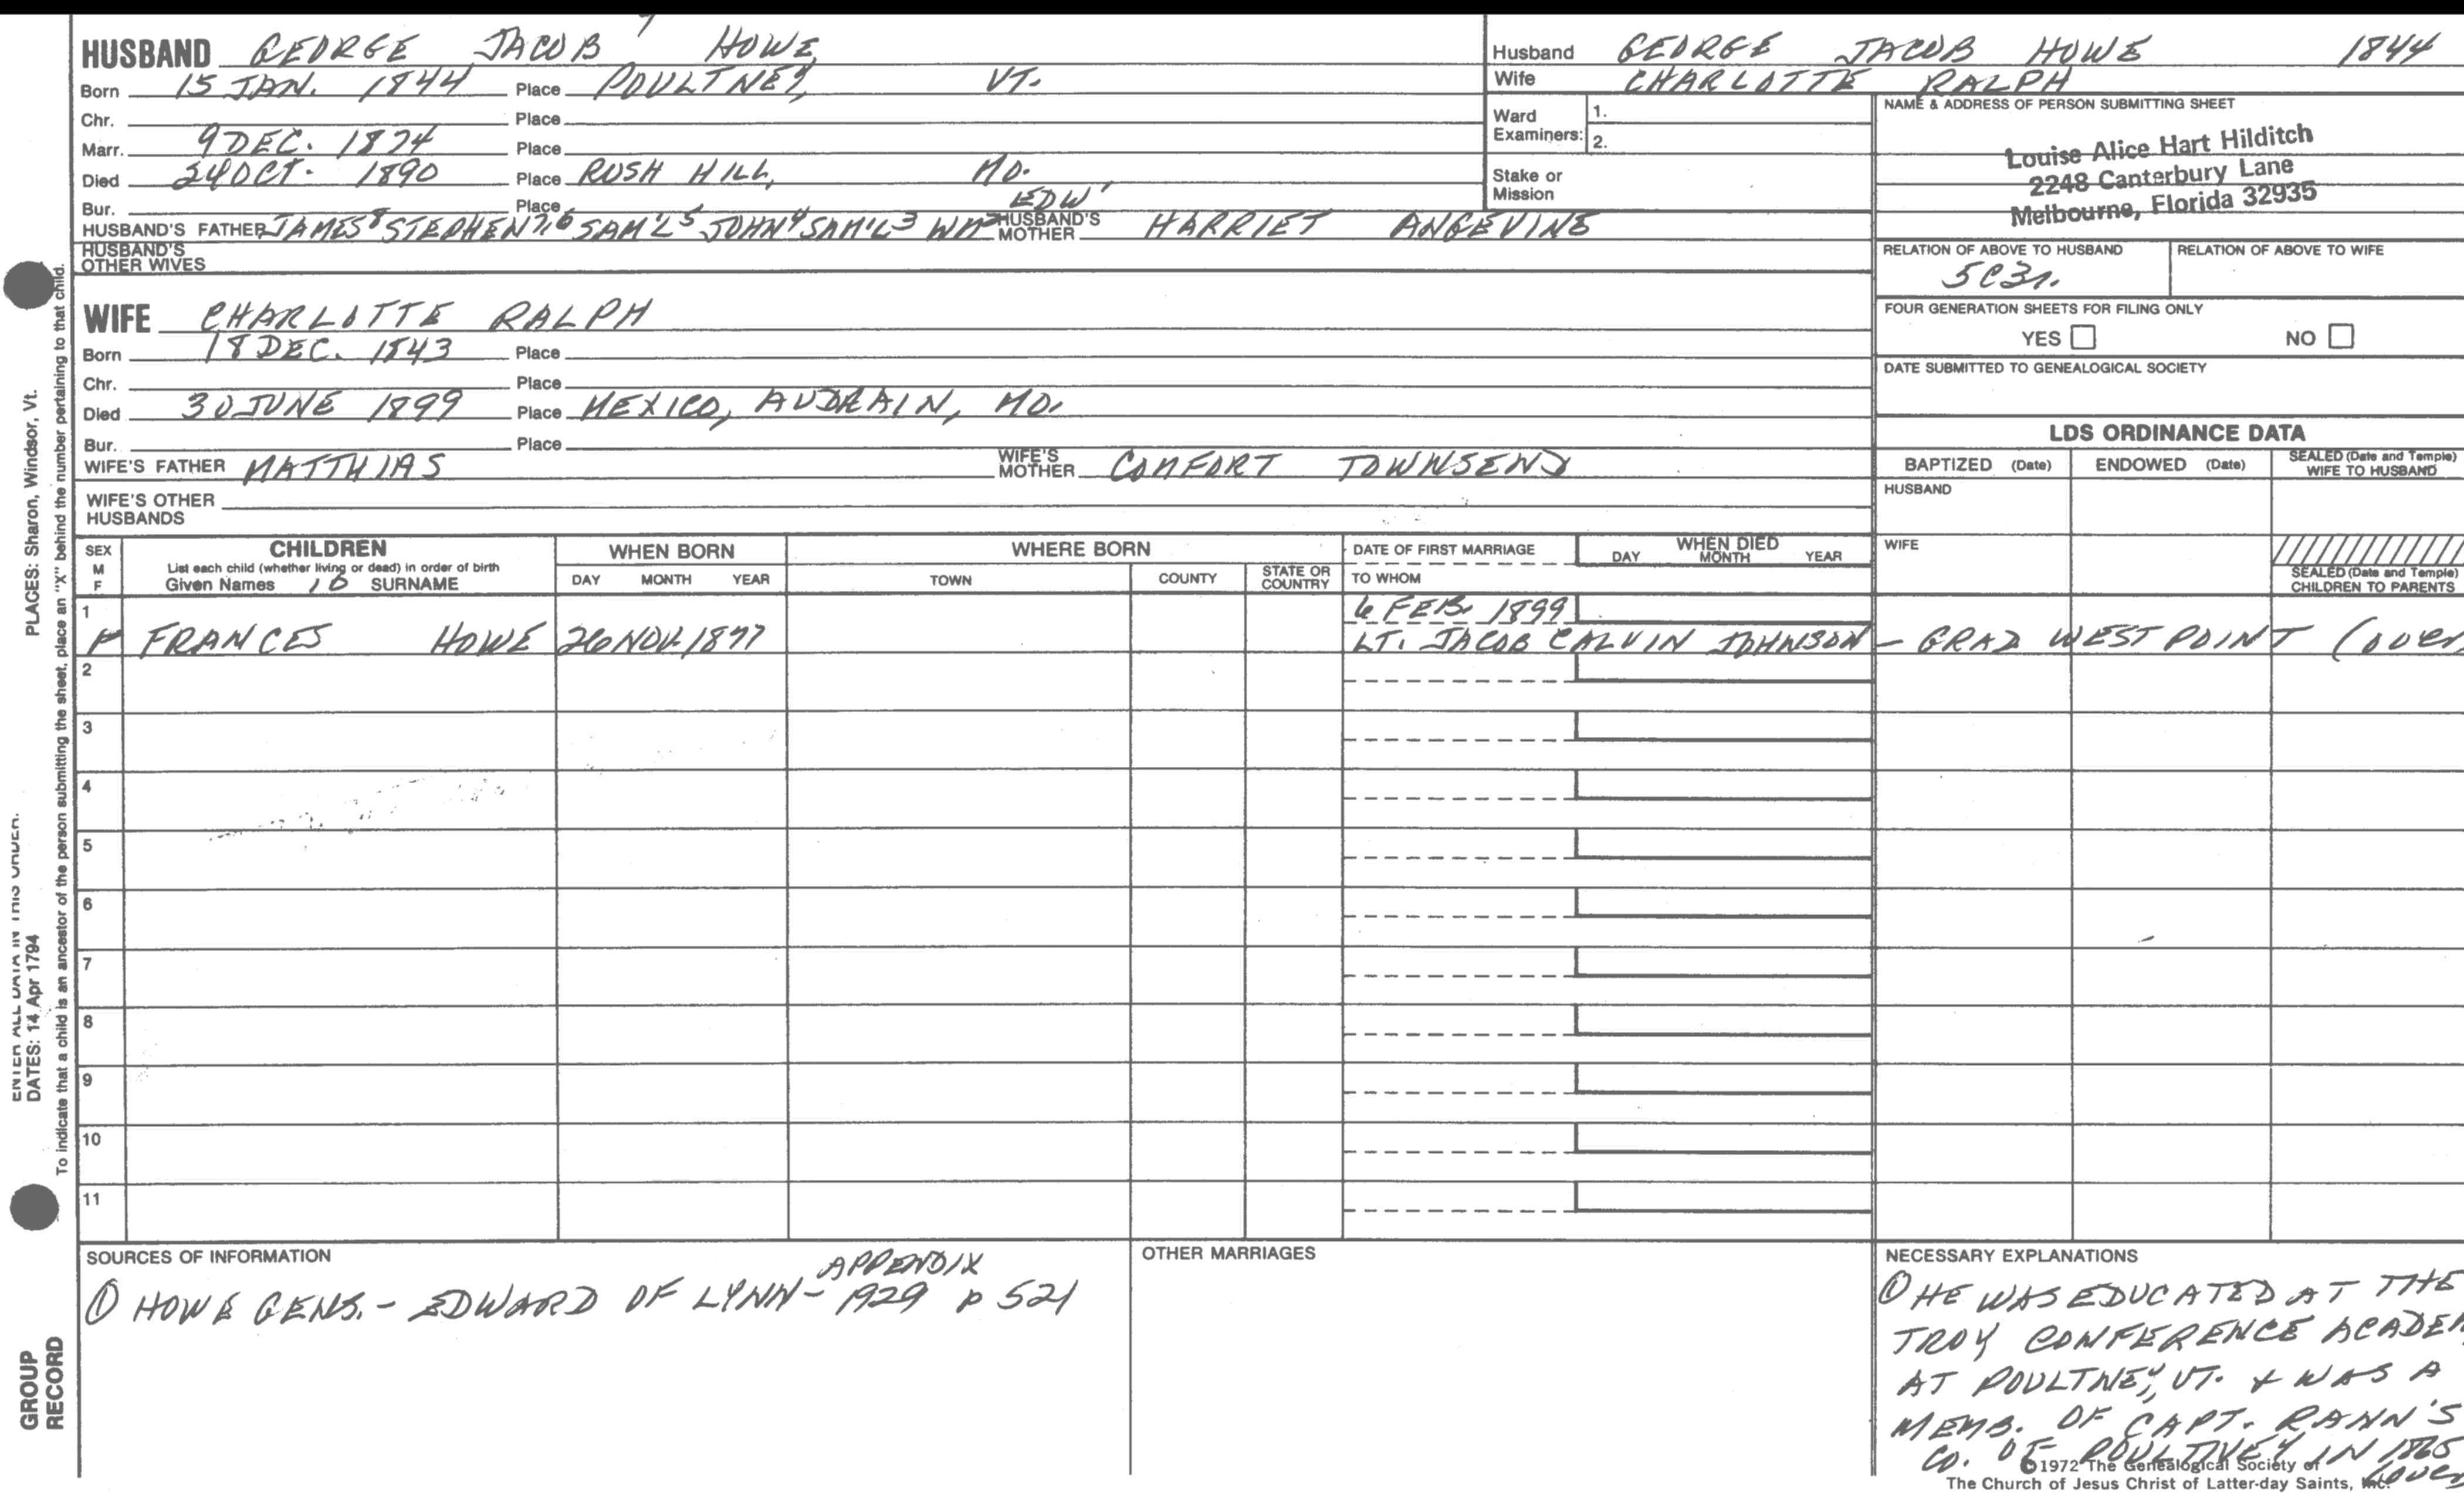 HUSBAND GEORGE JACOB HOWE
Born 15 JAN. 1844 Place POULTNEY, VT.
Chr. Place
Marr. 9 DEC. 1874 Place
Died 24 OCT. 1890 Place RUSH HILL, MO.
Bur. Place
HUSBAND'S FATHER JAMES⁸ STEPHEN⁷,⁶ SAM'L⁵ JOHN⁴ SAM'L³ WM² EDW'
HUSBAND'S MOTHER HARRIET ANGEVINE
HUSBAND'S OTHER WIVES
WIFE CHARLOTTE RALPH
Born 18 DEC. 1843 Place
Chr. Place
Died 30 JUNE 1899 Place MEXICO, AUDRAIN, MO.
Bur. Place
WIFE'S FATHER MATTHIAS WIFE'S MOTHER COMFORT TOWNSEND
WIFE'S OTHER HUSBANDS
Husband GEORGE JACOB HOWE 1844
Wife CHARLOTTE RALPH
Ward Examiners: 1.
2.
Stake or Mission
NAME & ADDRESS OF PERSON SUBMITTING SHEET
Louise Alice Hart Hilditch
2248 Canterbury Lane
Melbourne, Florida 32935
RELATION OF ABOVE TO HUSBAND RELATION OF ABOVE TO WIFE
5C3r.
FOUR GENERATION SHEETS FOR FILING ONLY
YES NO
DATE SUBMITTED TO GENEALOGICAL SOCIETY
LDS ORDINANCE DATA
BAPTIZED (Date) ENDOWED (Date) SEALED (Date and Temple) WIFE TO HUSBAND
HUSBAND
WIFE
SEALED (Date and Temple) CHILDREN TO PARENTS
SEX M F
CHILDREN
List each child (whether living or dead) in order of birth
Given Names SURNAME
WHEN BORN
DAY MONTH YEAR
WHERE BORN
TOWN COUNTY STATE OR COUNTRY
DATE OF FIRST MARRIAGE
TO WHOM
WHEN DIED
DAY MONTH YEAR
1 6 FEB. 1899
F FRANCES HOWE 26 NOV. 1877 LT. JACOB CALVIN JOHNSON – GRAD WEST POINT (over
2
3
4
5
6
7
8
9
10
11
SOURCES OF INFORMATION
APPENDIX
① HOWE GENS. - EDWARD OF LYNN - 1929 p 521
OTHER MARRIAGES
NECESSARY EXPLANATIONS
① HE WAS EDUCATED AT THE
TROY CONFERENCE ACADEM
AT POULTNEY, VT. & WAS A
MEMB. OF CAPT. RANN'S
CO. OF POULTNEY IN 1865
(over
©1972 The Genealogical Society of
The Church of Jesus Christ of Latter-day Saints, Inc.
PLACES: Sharon, Windsor, Vt.
ENTER ALL DATA IN THIS ORDER:
DATES: 14 Apr 1794
To indicate that a child is an ancestor of the person submitting the sheet, place an "X" behind the number pertaining to that child.
GROUP
RECORD